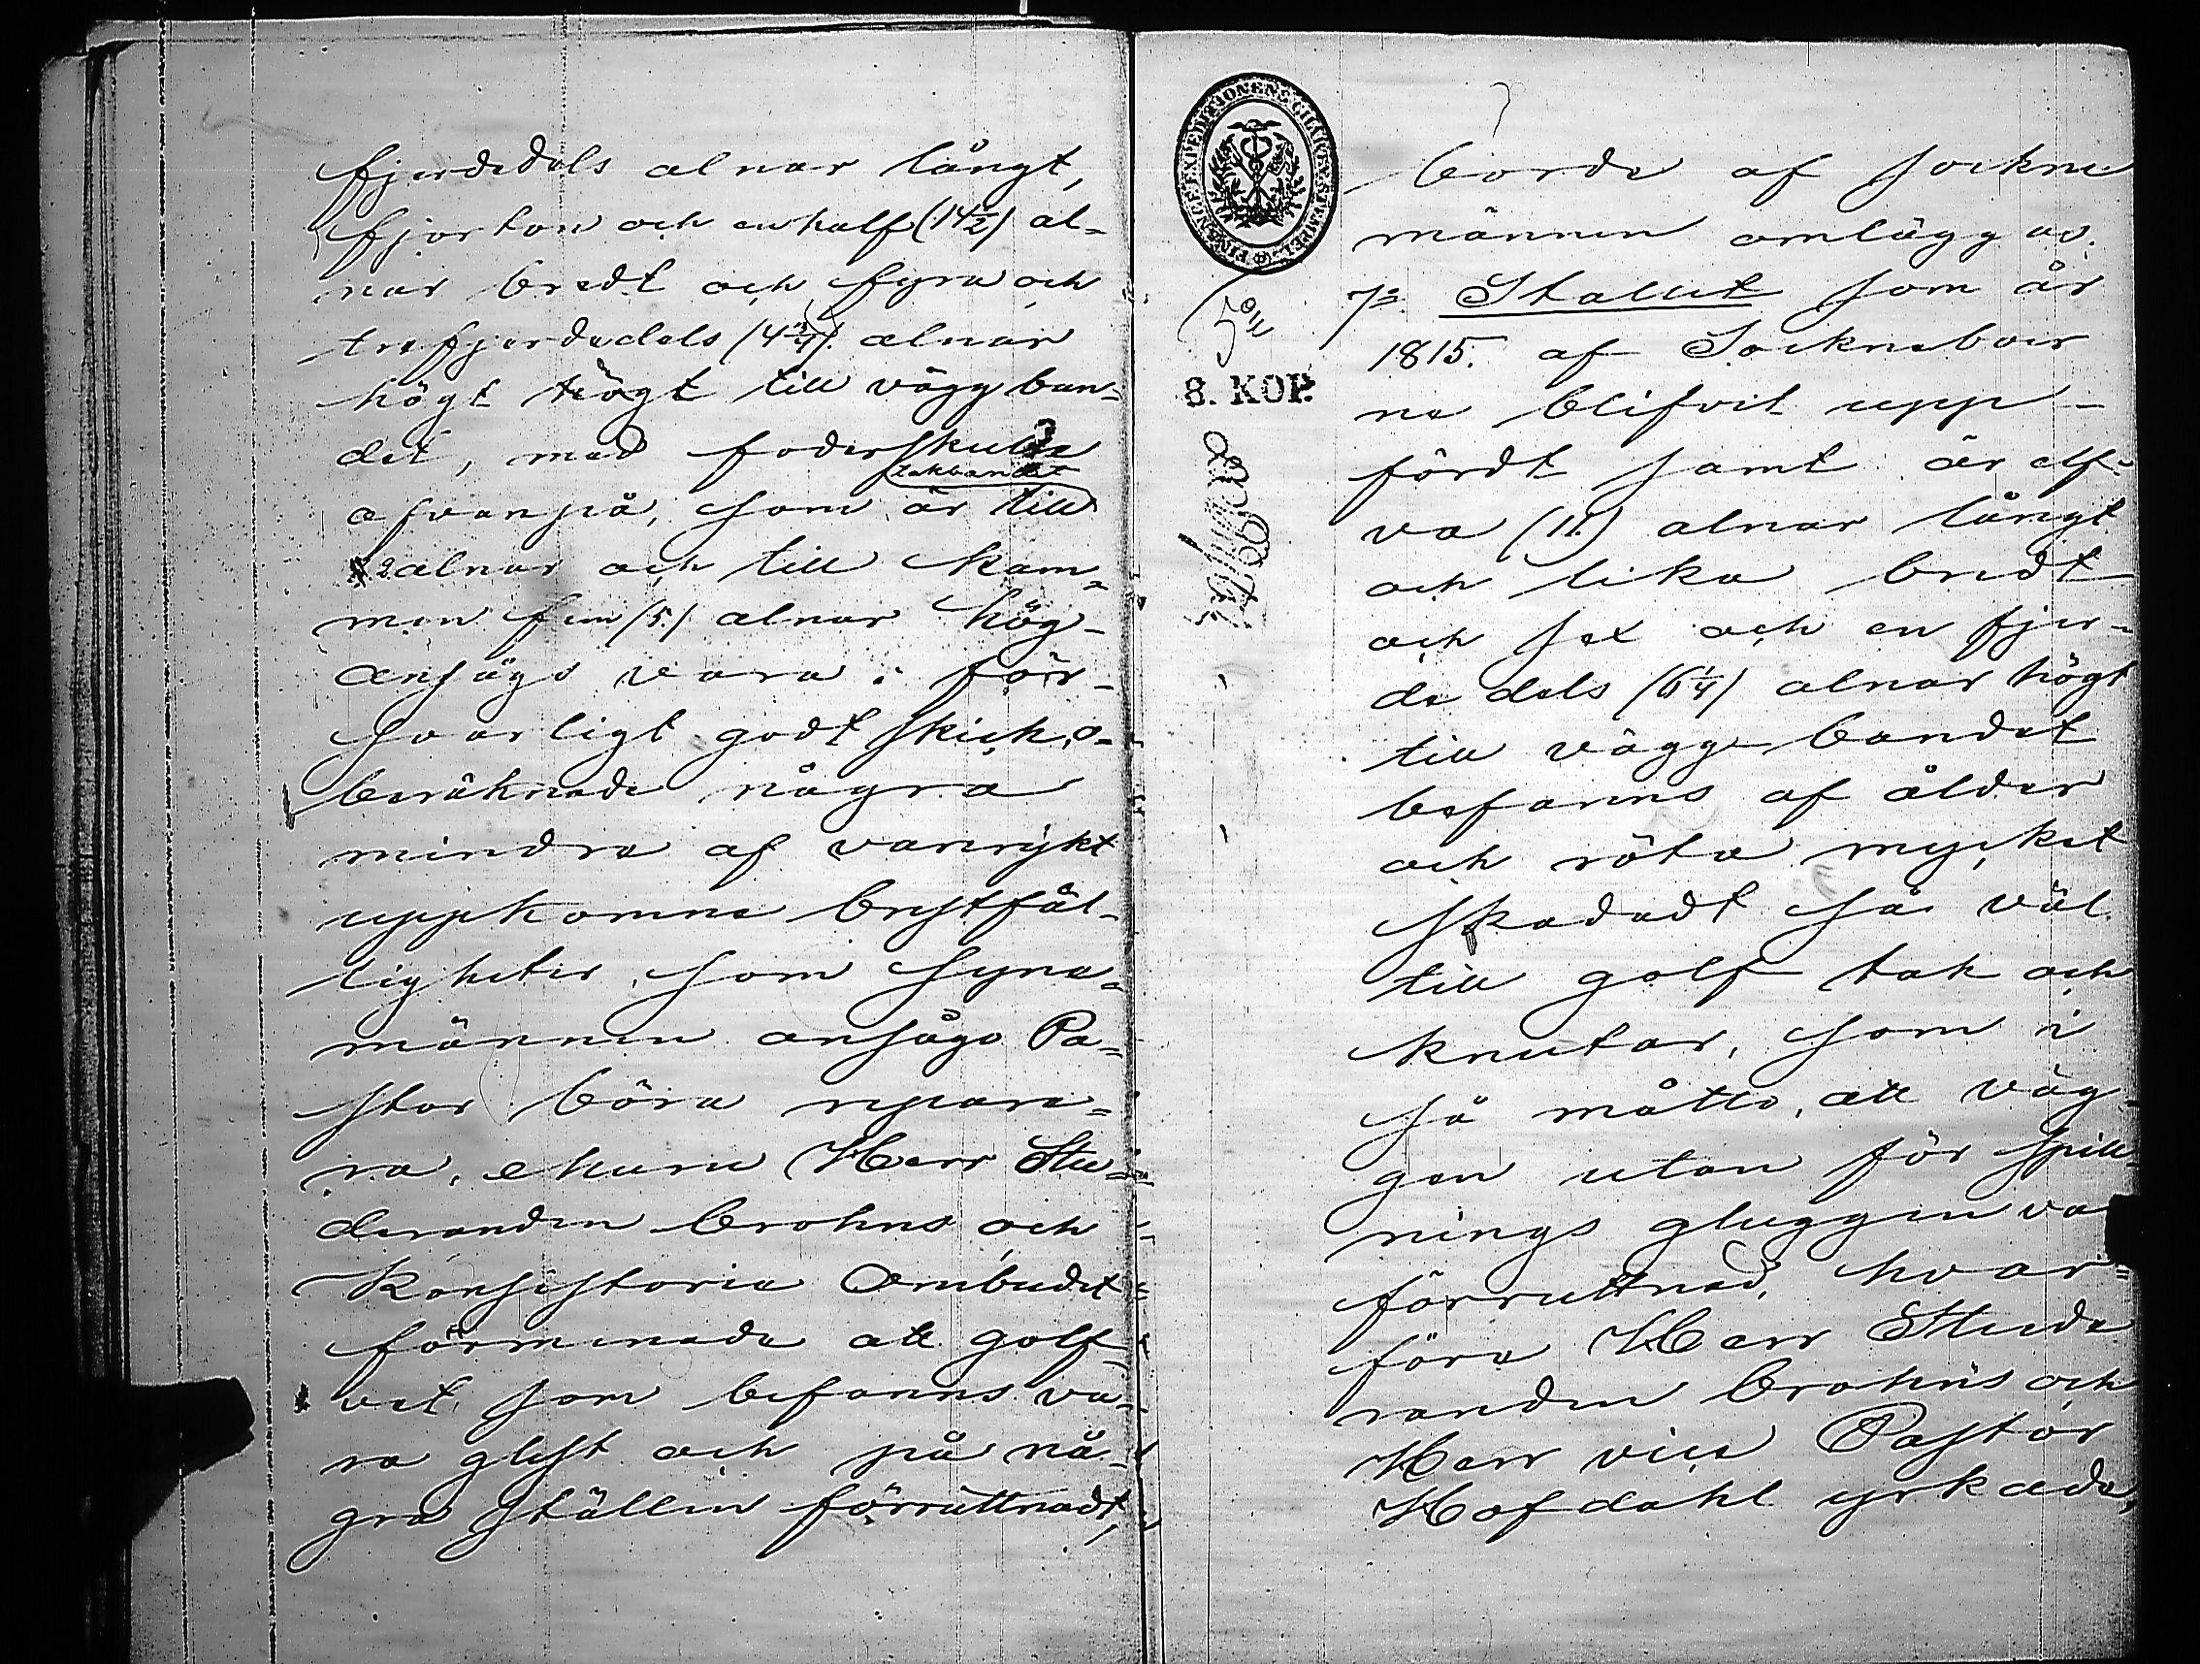 fjerdedels alnar långt,
fjorton och en half (14½) al-
nar bredt och fyra och
trefjerdedels (4¾) alnar
högt till väggban-
det, med foderskulle
takbandet
ofvanpå, som är till
2 alnar och till kam-
men fem (5) alnar hög
ansågs vara i för-
svarligt godt skick, o-
beräknade några
mindre af vanrykt
uppkomne bristfäl-
ligheter, som syne-
männen ansågo Pa-
stor böra repare-
ra, ehuru Herr Stu-
deranden Brohns och
Konsistorie Ombudet
förmenade att golf-
vet, som befanns va-
ra glest och på nå-
gra ställen förruttnadt,
FINANCE EXPEDITIONENS CHARTÆ STEMPEL
8. KOP.
borde af sockne
männen omläggas.
7o Stallet som år
1815. af Sockneboer
ne blifvit upp-
fördt samt är elf-
va (11.) alnar långt
och lika bredt
och sex och en fjer-
de dels (6¼) alnar högt
till väggbandet
befanns af ålder
och röta mycket
skadadt så väl
till golf tak och
knutar, som i
så måtto, att väg-
gen utan för spill-
nings gluggen va
förruttnad, hvar-
före Herr Stude
randen Brohns och
Herr vice Pastor
Hofdahl yrkade,